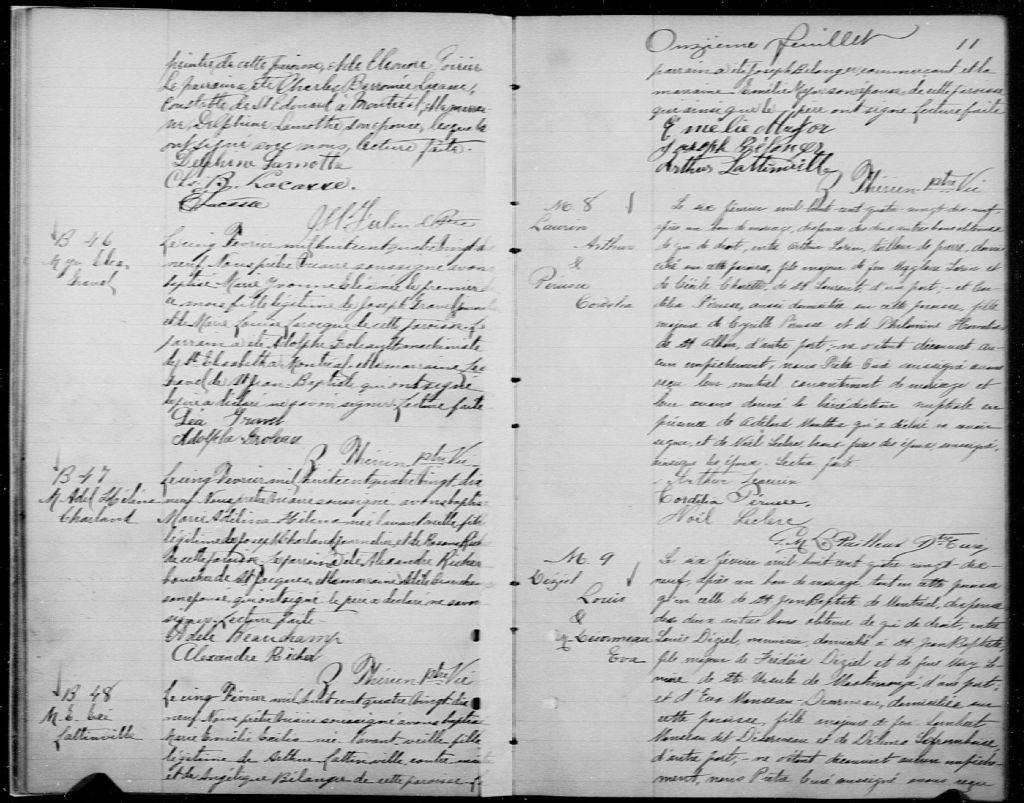 peintre de cette paroisse, et de Eléonore Poirier
Le parrain a été Charles Barromée Lacasse,
Constable de St Edouard à Montréal et la marrai-
ne, Delphine Lamothe, son épouse, lesquels
ont signé avec nous, lecture faite.
Delphine Lamothe
Chs. B. Lacasse.
B 46
Le cinq Février mil huit cent quatre vingt dix
neuf Nous prêtre Vicaire soussigné avons
baptisé Marie Yvonne Cléa née le premier de
ce mois fille légitime de Joseph Gravel
et de Marie Louise Larocque de cette paroisse. Le
parrain a été Adolphe Groleau machiniste
de St Elizabeth à Montréal et la marraine Léa
Gravel de St Jean-Baptiste qui ont signé
le père a déclaré ne savoir signer. Lecture faite
Léa Gravel
Adolphe Groleau
Thérien ptre Vic
B 47
M. Adel. Hélène
Charland
Le cinq Février mil huit cent quatre vingt dix
neuf Nous prêtre Vicaire soussigné avons baptisé
Marie Adélina Hélène née l'avant veille fille
légitime de Joseph Charland journalier et de
de cette paroisse. Le parrain a été Alexandre Richer
boucher de St Jacques, et la marraine Adèle Beauchamp
son épouse qui ont signé le père a déclaré ne savoir
signer. Lecture faite-
Adèle Beauchamp
Alexandre Richer
Thérien ptre Vic
B 48
M. E. Céci
Lattinville
Le cinq Février mil huit cent quatre vingt dix
neuf Nous prêtre Vicaire soussigné avons baptisé
Marie Emélie Cécilia née l'avant veille fille
légitime de Arthur Lattinville contre maître
et de Angélique Bélanger de cette paroisse Le
Onzième feuillet 11
parrain a été Joseph Bélanger, commerçant et la
marraine Emélie Major son épouse, de cette paroisse
qui ainsi que le père ont signé Lecture faite
Emelie Major
Joseph Bélanger
Arthur Lattinville
Thérien ptre Vic
M. 8
Laurin
Arthur
&
Perusse
Cordelia
Le six février mil huit cent quatre vingt dix neuf,
après un ban de mariage, dispense des deux autres bans obtenue
de qui de droit, entre Arthur Laurin, tailleur de pierre, domi-
cilié sur cette paroisse, fils majeur de feu Magloire Laurin et
de Cécile Charette, de St Laurent d'une part; et Cor-
delia Pérusse, aussi domiciliée sur cette paroisse, fille
majeure de Cyrille Pérusse et de Philomène
de St Alban, d'autre part; ne s'étant découvert au-
cun empêchement, nous Prêtre Curé soussigné avons
reçu leur mutuel consentement de mariage et
leur avons donné la bénédiction nuptiale en
présence de qui a déclaré ne savoir
signer, et de Noël Leclerc, beau-père des époux, soussigné,
ainsi que les époux. Lecture faite
Arthur Laurin
Cordélia Pérusse.
Noël Leclerc
Ptre Curé
M. 9
Deziel
Louis
&
Desormeau
Eva
Le six février mil huit cent quatre vingt dix-
neuf, après un ban de mariage, tant en cette paroisse
qu'en celle de St Jean Baptiste de Montréal, dispense
des deux autres bans obtenue de qui de droit, entre
Louis Déziel, menuisier, domicilié à St Jean Baptiste,
fils majeur de Frédéric Déziel et de feue Mary Le-
mire de Ste Ursule de Maskinongé, d'une part;
et Eva Monceau-Desormeau, domiciliée sur
cette paroisse, fille majeure de feu Lambert
Monceau dit Désormeau et de Délima Lafrombaise,
d'autre part; ne s'étant découvert aucun empêche-
ment, nous Prêtre Curé soussigné avons reçu